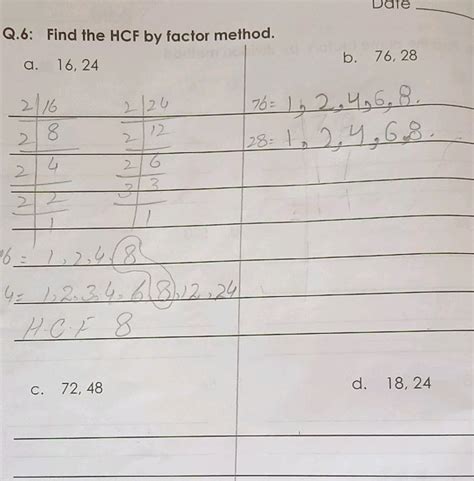 Date
Q.6: Find the HCF by factor method.
a. 16, 24
b. 76, 28
2 16 2 24
2 8 2 12
2 4 2 6
2 2 3 3
1 1
76= 1, 2, 4, 6, 8.
28= 1, 2, 4, 6, 8.
6 = 1, 2, 4, 8
4= 1, 2, 3, 4, 6, 8, 12, 24
H.C.F 8
c. 72, 48
d. 18, 24